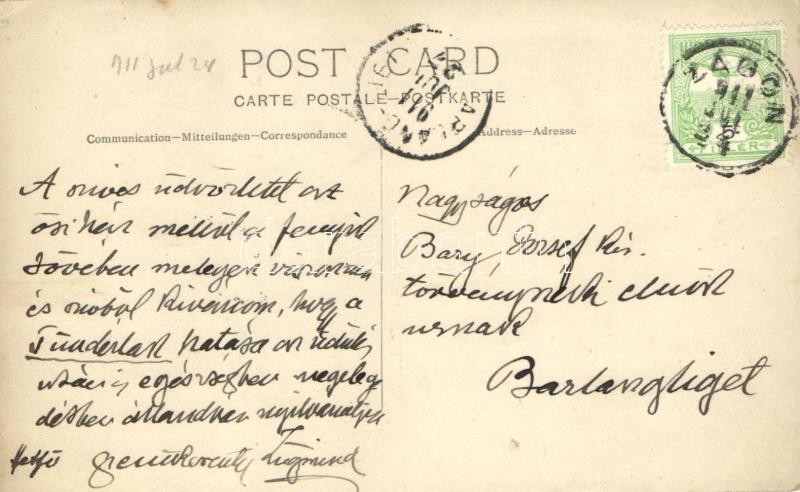 911 Jul 24
POST CARD
CARTE POSTALE—POSTKARTE
Communication—Mitteilungen—Correspondance
Address—Adresse
ZÁGON
911 JUL
FILLÉR
BARLANGLIGET
911 JUL
A szives üdvözletet az
ősi ház mellől a fenyők
tövében melegen viszonzom
és szóból kivánom, hogy a
Tündérlak hatása az üdülés
után is egészségben megeleg
désben állandóan nyilvánuljon
Hétfő Zsigmond
Nagyságos
Bary József kir.
törvényszéki elnök
urnak
Barlangliget